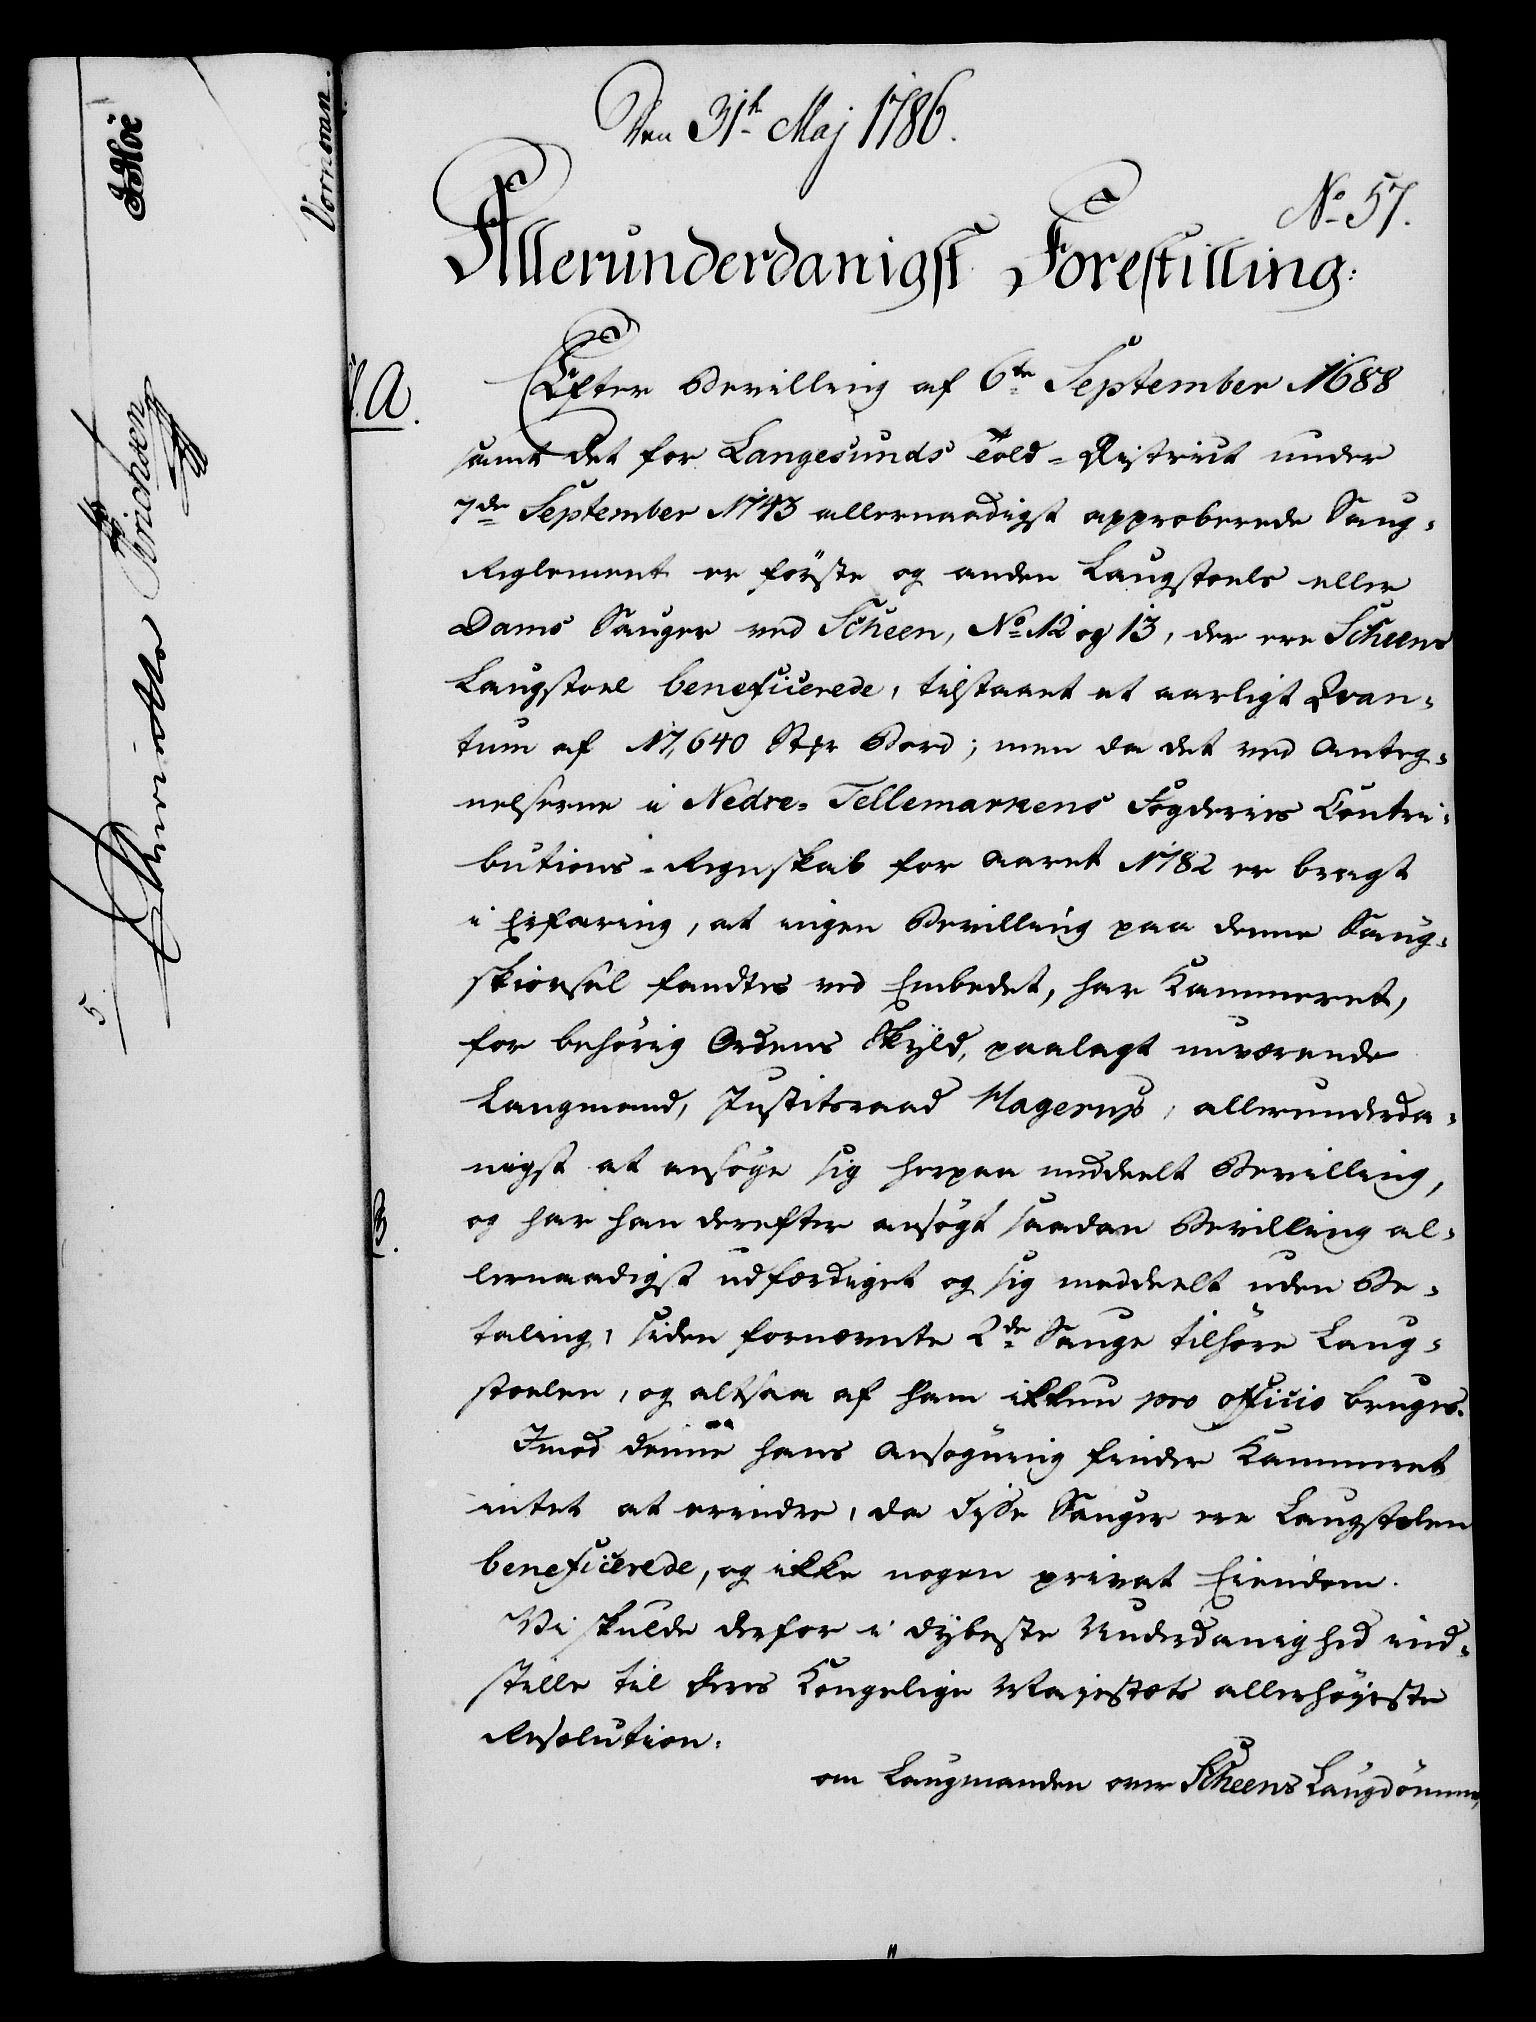 Den 31te Maj 1786.
No 57.
Allerunderdanigst Forestilling:
A.
Efter Bevilling af 6te September 1688
samt det for Langesunds Told-District under
7de September 1743 allernaadigst approberede Saug-
Reglement er förste og anden Laugstoels eller
Dams Sauger ved Scheen, No 12 og 13, der ere Scheens
Laugstoel beneficerede, tilstaaet et aarligt Qvan-
tum af 17,640 Stkr Bord; men da det ved Anteg-
nelserne i Nedre-Tellemarkens Fogderies Contri-
butions-Regnskab for Aaret 1782 er bragt
i Erfaring, at ingen Bevilling paa denne Saug-
skiørsel fandtes ved Embedet, har Kammeret,
for behörig Ordens Skyld, paalagt nuværende
Laugmand, Justitsraad Hagerup, allerunderda-
nigst at ansøge sig herpaa meddeelt Bevilling,
B.
og har han derefter ansögt saadan Bevilling al-
lernaadigst udfærdiget og sig meddeelt uden Be-
taling, siden fornævnte 2de Sauge tilhøre Laug-
stoelen, og altsaa af ham ikkun pro officio bruges.
Imod denne hans Ansøgning finder Kammeret
intet at erindre, da disse Sauger ere Laugstolen
beneficerede, og ikke nogen privat Eiendom.
Vi skulde derfor i dybeste Underdanighed ind-
stille til Deres Kongelige Majestæts allerhöyeste
Resolution:
om Laugmanden over Scheens Laugdömme,
JHoë
Vorndran.
Erichsen
5